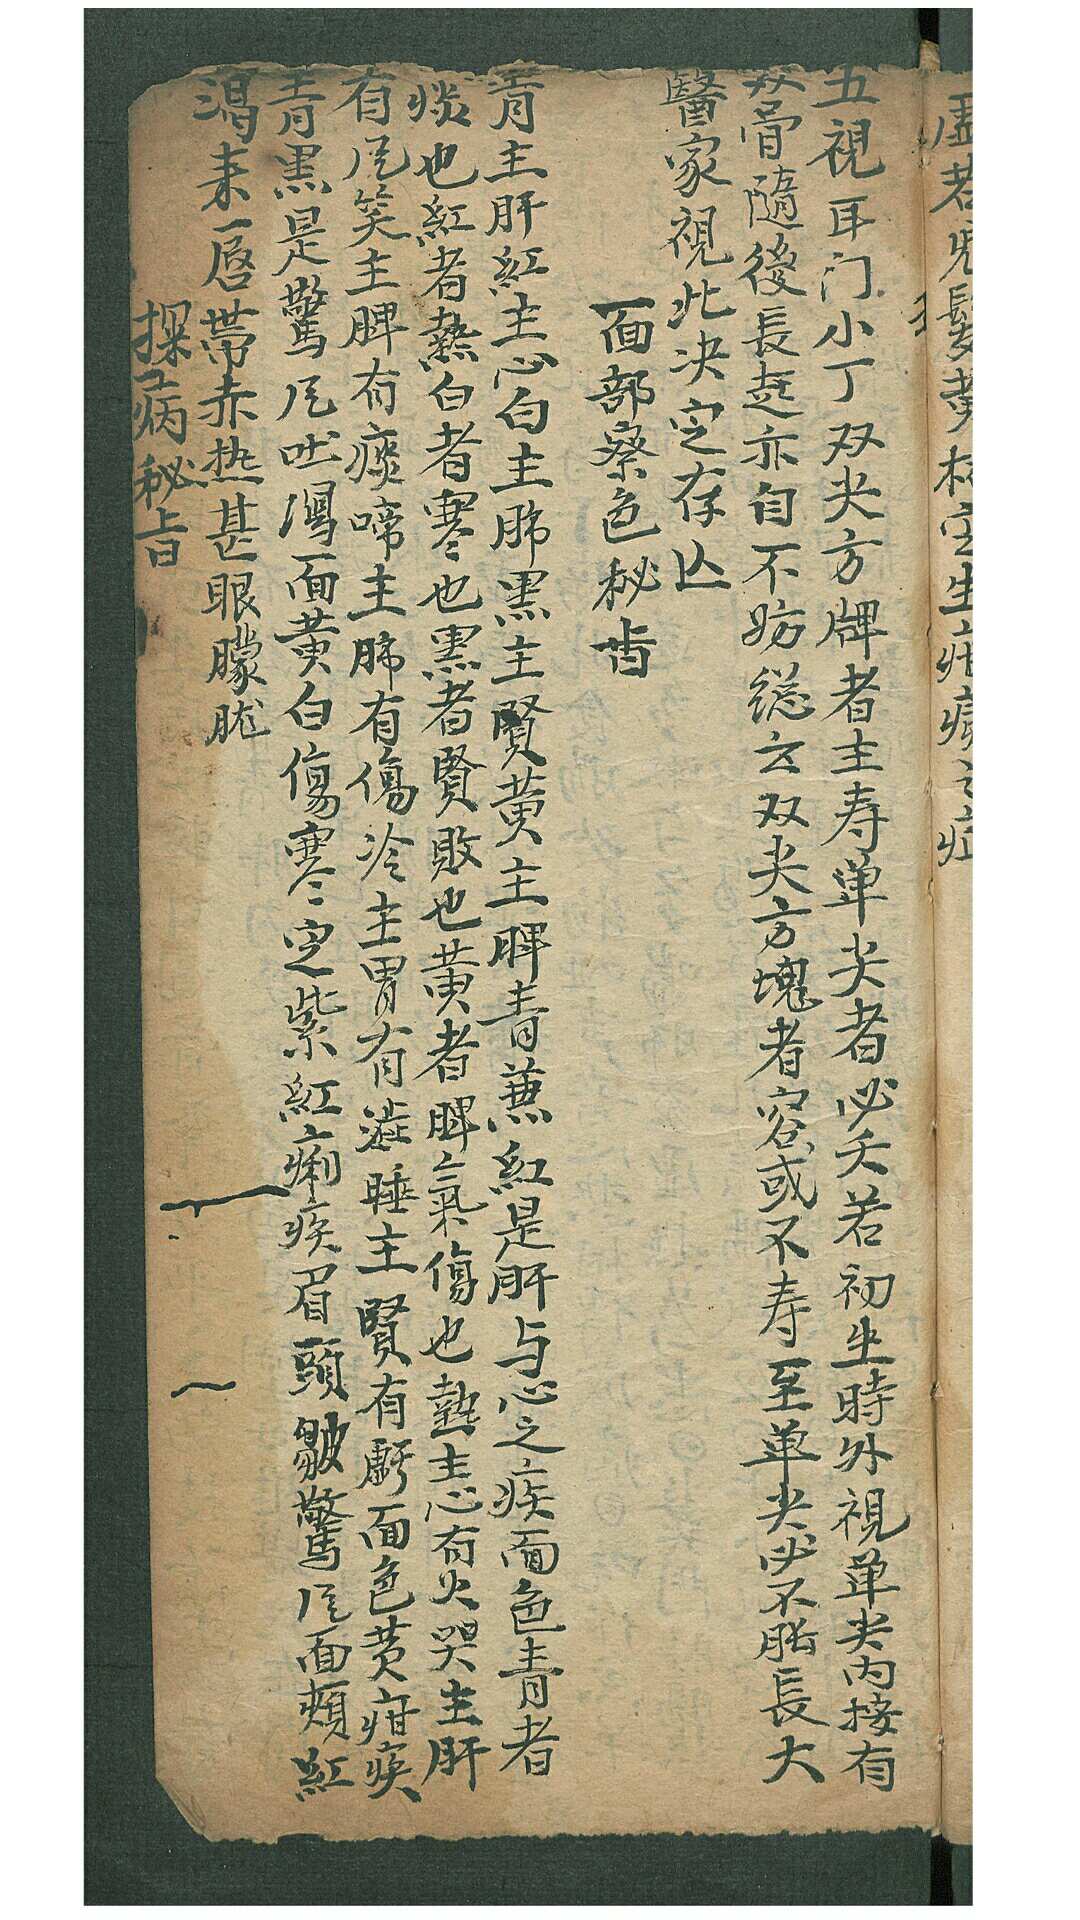 虛若児髮黄枯定生疳癀之症
五視耳门小丁双尖方牌者主寿单尖者必夭若初坐時外視单尖內接有
双骨隨後長起亦自不妨縂云双尖方塊者容或不寿至单尖必不脹長大
醫家視此决定存亾
一面部察色秘旹
青主肝紅主心白主肺黒主賢黄主脾青兼紅是肝与心之疾面色青者
痰也紅者熱白者寒也黒者賢敗也黄者脾氣傷也熱主心有火哭主肝
有风笑主脾有痰啼主肺有傷冷主胃有澁睡主賢有虧面色黄疳疾
青黒是驚风吐瀉面黄白傷寒定紫紅痢疾眉頭皺驚风面頰紅
渴来唇帶赤热甚眼朦胧
探病秘旨